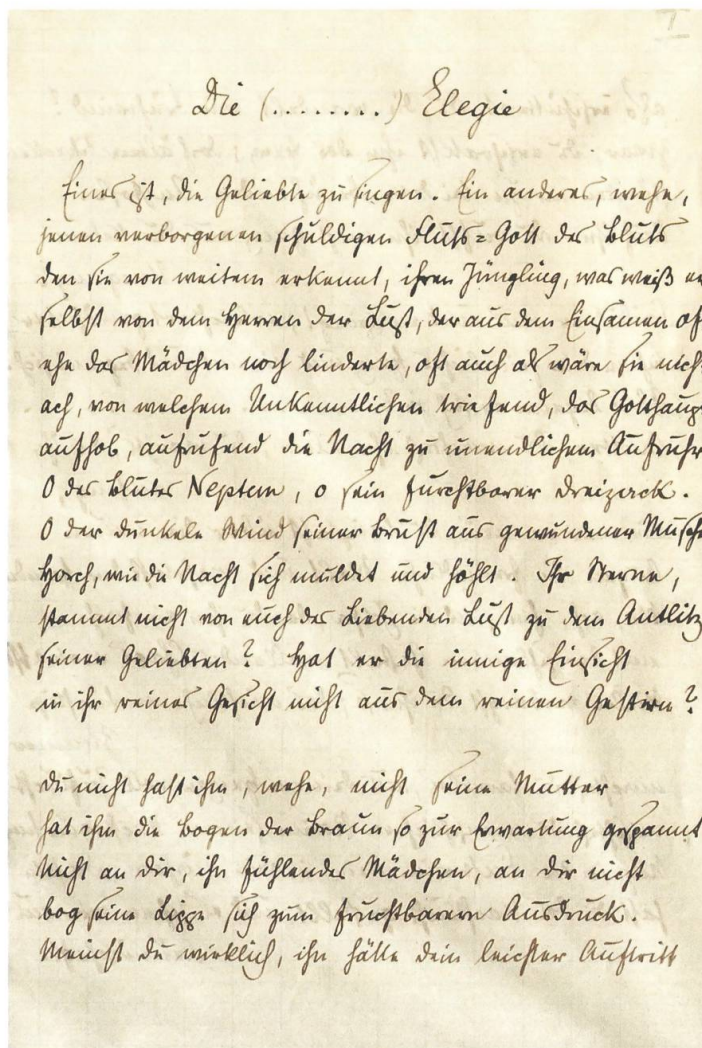 I
Die (........) Elegie
Eines ist, die Geliebte zu singen. Ein anderes, wehe,
jenen verborgenen schuldigen Fluss=Gott des Bluts
den sie von weitem erkennt, ihren Jüngling, was weiß er
selbst von dem Herren der Lust, der aus dem Einsamen of
ehe das Mädchen noch linderte, oft auch als wäre sie nich
ach, von welchem Unkenntlichen triefend, das Gotthaup
aufhob, aufrufend die Nacht zu unendlichem Aufruhr
O des Blutes Neptun, o sein furchtbarer Dreizack.
O der dunkele Wind seiner Brust aus gewundener Musche
Horch, wie die Nacht sich muldet und höhlt. Ihr Sterne,
stammt nicht von euch des Liebenden Lust zu dem Antlitz
seiner Geliebten? Hat er die innige Einsicht
in ihr reines Gesicht nicht aus dem reinen Gestirn?
Du nicht hast ihm, wehe, nicht seine Mutter
hat ihm die Bogen der Braun so zur Erwartung gespannt
Nicht an dir, ihn fühlendes Mädchen, an dir nicht
bog seine Lippe sich zum fruchtbarern Ausdruck.
Meinst du wirklich, ihn hätte dein leichter Auftritt